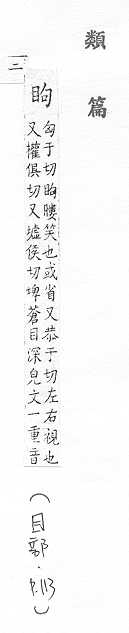 類篇
二
眗
匈于切眗瞜笑也或省又恭于切左右視也
又權俱切又墟侯切埤蒼目深皃文一重音
(目部·P.113)